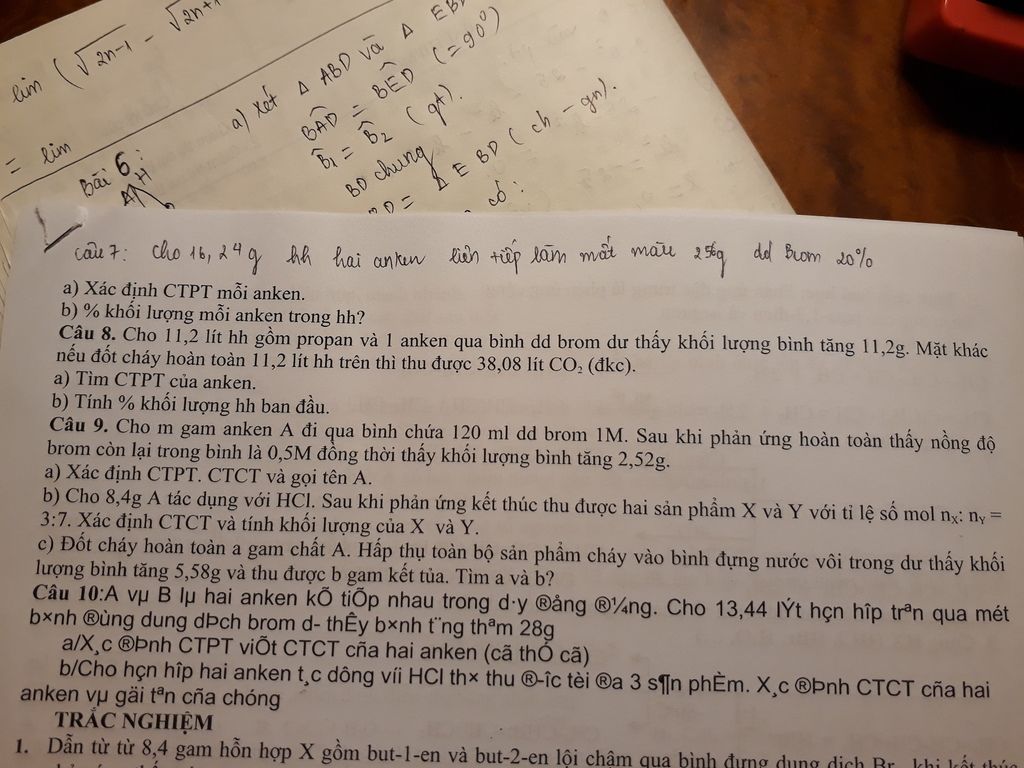 lim ( √2n-1 - √2n+1
= lim
a) Xét Δ ABD và Δ EBD
BÂD = BÊD (= 90⁰)
B̂₁ = B̂₂ (gt).
BD chung
= Δ EBD (ch - gn).
có:
Bài 6:
A H
Câu 7: Cho 16,24g hh hai anken liên tiếp làm mất màu 256g dd Brom 20%
a) Xác định CTPT mỗi anken.
b) % khối lượng mỗi anken trong hh?
Câu 8. Cho 11,2 lít hh gồm propan và 1 anken qua bình dd brom dư thấy khối lượng bình tăng 11,2g. Mặt khác
nếu đốt cháy hoàn toàn 11,2 lít hh trên thì thu được 38,08 lít CO₂ (đkc).
a) Tìm CTPT của anken.
b) Tính % khối lượng hh ban đầu.
Câu 9. Cho m gam anken A đi qua bình chứa 120 ml dd brom 1M. Sau khi phản ứng hoàn toàn thấy nồng độ
brom còn lại trong bình là 0,5M đồng thời thấy khối lượng bình tăng 2,52g.
a) Xác định CTPT. CTCT và gọi tên A.
b) Cho 8,4g A tác dụng với HCl. Sau khi phản ứng kết thúc thu được hai sản phẩm X và Y với tỉ lệ số mol nX: nY =
3:7. Xác định CTCT và tính khối lượng của X và Y.
c) Đốt cháy hoàn toàn a gam chất A. Hấp thụ toàn bộ sản phẩm cháy vào bình đựng nước vôi trong dư thấy khối
lượng bình tăng 5,58g và thu được b gam kết tủa. Tìm a và b?
Câu 10:A vµ B lµ hai anken kÕ tiÕp nhau trong d·y ®ång ®¼ng. Cho 13,44 lÝt hçn hîp trªn qua mét
b×nh ®ùng dung dÞch brom d- thÊy b×nh t¨ng thªm 28g
a/X¸c ®Þnh CTPT viÕt CTCT cña hai anken (cã thÓ cã)
b/Cho hçn hîp hai anken t¸c dông víi HCl th× thu ®-îc tèi ®a 3 s¶n phÈm. X¸c ®Þnh CTCT cña hai
anken vµ gäi tªn cña chóng
TRẮC NGHIỆM
1. Dẫn từ từ 8,4 gam hỗn hợp X gồm but-1-en và but-2-en lội chậm qua bình đựng dung dịch Br₂, khi kết thúc